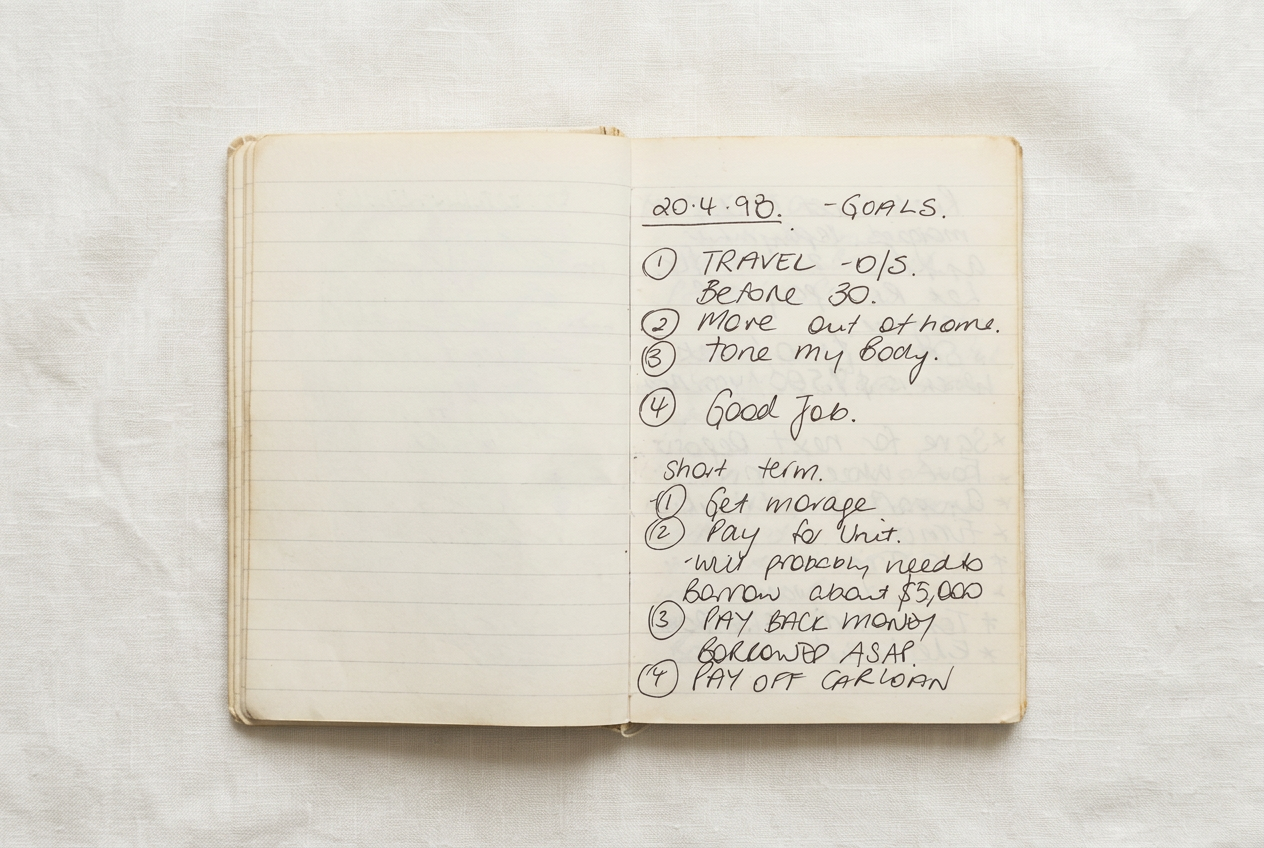 20.4.98. -GOALS.
① TRAVEL -O/S.
Before 30.
② Move out of home.
③ Tone my Body.
④ Good Job.
short term.
-① Get morage
② Pay for Unit.
-will probably need to
Borrow about $5,000
③ PAY BACK MONEY
BORROWED ASAP.
④ PAY OFF CAR LOAN